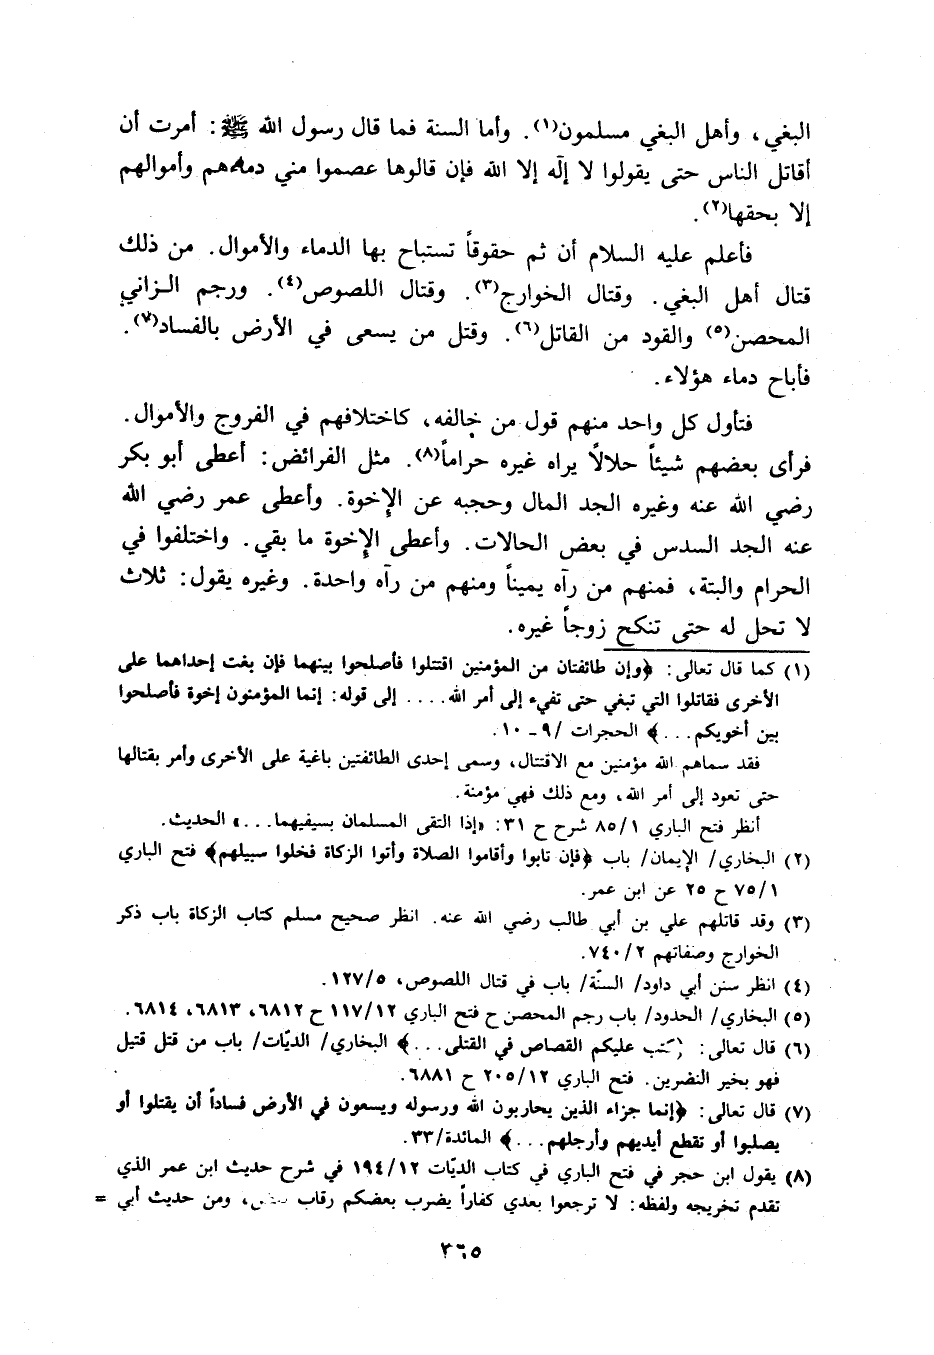 البغي، وأهل البغي مسلمون(١). وأما السنة فما قال رسول الله ﷺ: أمرت أن
أقاتل الناس حتى يقولوا لا إلٰه إلا الله فإن قالوها عصموا مني دمهم وأموالهم
إلا بحقها(٢).
فأعلم عليه السلام أن ثم حقوقاً تستباح بها الدماء والأموال. من ذلك
قتال أهل البغي. وقتال الخوارج(٣). وقتال اللصوص(٤). ورجم الـزاني
المحصن(٥) والقود من القاتل(٦). وقتل من يسعى في الأرض بالفساد(٧).
فأباح دماء هؤلاء.
فتأول كل واحد منهم قول من خالفه، كاختلافهم في الفروج والأموال.
فرأى بعضهم شيئاً حلالاً يراه غيره حراماً(٨). مثل الفرائض: أعطى أبو بكر
رضي الله عنه وغيره الجد المال وحجبه عن الإخوة. وأعطى عمر رضي الله
عنه الجد السدس في بعض الحالات. وأعطى الإخوة ما بقي. واختلفوا في
الحرام والبتة، فمنهم من رآه يميناً ومنهم من رآه واحدة. وغيره يقول: ثلاث
لا تحل له حتى تنكح زوجاً غيره.
(١) كما قال تعالى: ﴿وإن طائفتان من المؤمنين اقتتلوا فأصلحوا بينهما فإن بغت إحداهما على
الأخرى فقاتلوا التي تبغي حتى تفيء إلى أمر الله.... إلى قوله: إنما المؤمنون إخوة فأصلحوا
بين أخويكم...﴾ الحجرات /٩ـ ١٠.
فقد سماهم الله مؤمنين مع الاقتتال، وسمى إحدى الطائفتين باغية على الأخرى وأمر بقتالها
حتى تعود إلى أمر الله، ومع ذلك فهي مؤمنة.
أنظر فتح الباري ٨٥/١ شرح ح ٣١: «إذا التقى المسلمان بسيفيهما...» الحديث.
(٢) البخاري/ الإيمان/ باب ﴿فإن تابوا وأقاموا الصلاة وأتوا الزكاة فخلوا سبيلهم﴾ فتح الباري
٧٥/١ ح ٢٥ عن ابن عمر.
(٣) وقد قاتلهم علي بن أبي طالب رضي الله عنه. انظر صحيح مسلم كتاب الزكاة باب ذكر
الخوارج وصفاتهم ٧٤٠/٢.
(٤) انظر سنن أبي داود/ السنّة/ باب في قتال اللصوص، ١٢٧/٥.
(٥) البخاري/ الحدود/ باب رجم المحصن ح فتح الباري ١١٧/١٢ ح ٦٨١٢، ٦٨١٣، ٦٨١٤.
(٦) قال تعالى: ﴿كتب عليكم القصاص في القتلى...﴾ البخاري/ الديّات/ باب من قتل قتيل
فهو بخير النضرين. فتح الباري ٢٠٥/١٢ ح ٦٨٨١.
(٧) قال تعالى: ﴿إنما جزاء الذين يحاربون الله ورسوله ويسعون في الأرض فساداً أن يقتلوا أو
يصلبوا أو تقطع أيديهم وأرجلهم...﴾ المائدة/٣٣.
(٨) يقول ابن حجر في فتح الباري في كتاب الديّات ١٩٤/١٢ في شرح حديث ابن عمر الذي
تقدم تخريجه ولفظه: لا ترجعوا بعدي كفاراً يضرب بعضكم رقاب بعض، ومن حديث أبي =
٣٦٥